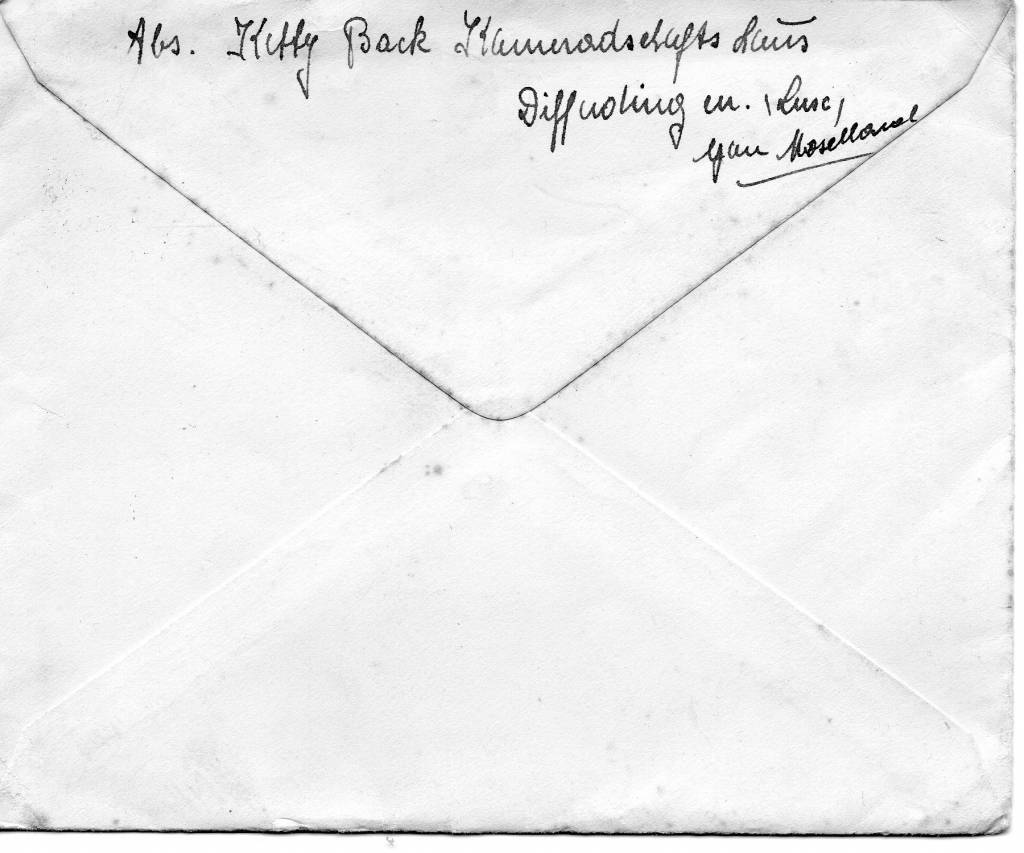 Abs. Ketty Back Kameradschafts Haus
Differdingen. (Lux)
Gau Moselland